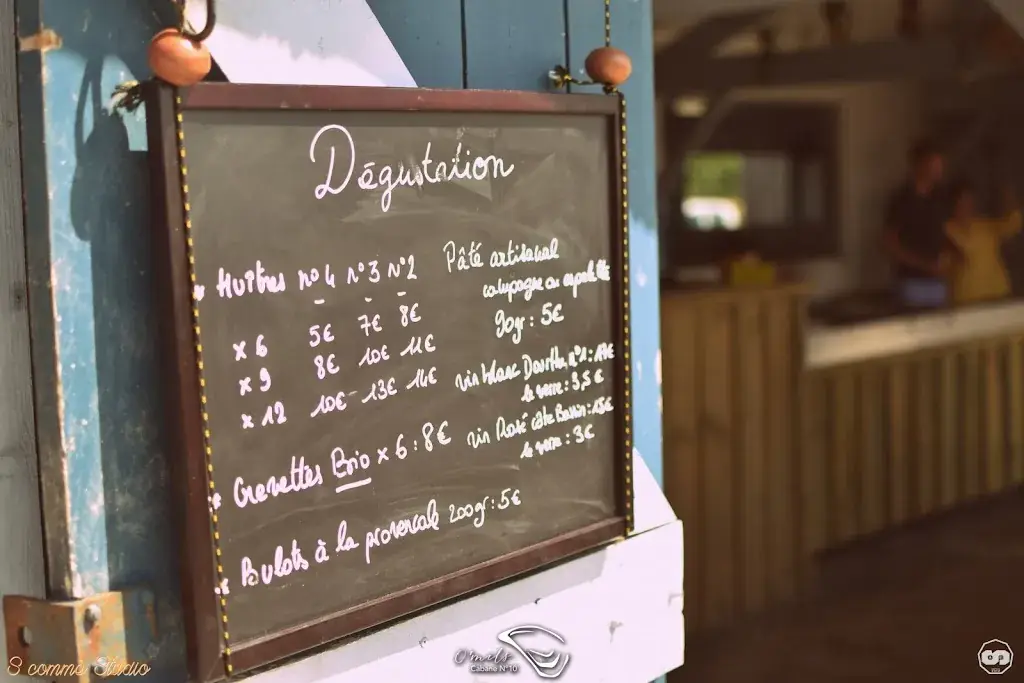 Dégustation
* Huîtres n°4 n°3 n°2
x 6 5€ 7€ 8€
x 9 8€ 10€ 11€
x 12 10€ 13€ 14€
* Crevettes Bio x 6 : 8€
* Bulots à la provencale 200gr : 5€
Pâté artisanal
campagne ou espelette
90gr : 5€
vin blanc Dourthe n°1 : 17€
le verre : 3,5€
vin Rosé côté Bassin : 15€
le verre : 3€
S comme Studio
Cabane N°10